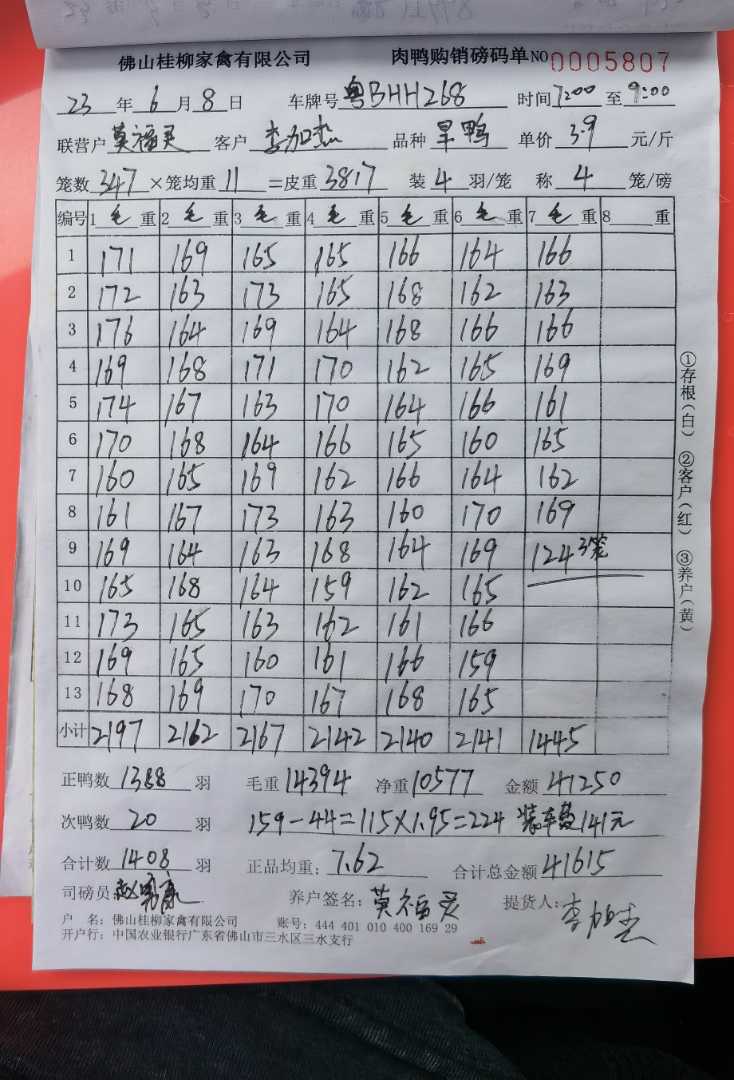 佛山桂柳家禽有限公司 肉鸭购销磅码单NO0005807
23年6月8日 车牌号粤BHH268 时间7:00至9:00
联营户莫福灵 客户李加杰 品种旱鸭 单价3.9元/斤
笼数347×笼均重11=皮重3817 装4羽/笼 称4笼/磅
编号 1毛重 2毛重 3毛重 4毛重 5毛重 6毛重 7毛重 8重
1 171 169 165 165 166 164 166
2 172 163 173 165 168 162 163
3 176 164 169 164 168 166 166
4 169 168 171 170 162 165 169
5 174 167 163 170 164 166 161
6 170 168 164 166 165 160 165
7 160 165 169 162 166 164 162
8 161 167 173 163 160 170 169
9 169 164 163 168 164 169 124 3笼
10 165 168 164 159 162 165
11 173 165 163 162 161 166
12 169 165 160 161 166 159
13 168 169 170 167 168 165
小计 2197 2162 2167 2142 2140 2141 1445
正鸭数1388羽 毛重14394 净重10577 金额41250
次鸭数20羽 159-44=115×1.95=224 装车费141元
合计数1408羽 正品均重:7.62 合计总金额41615
司磅员: 养户签名:莫福灵 提货人:李加杰
户 名:佛山桂柳家禽有限公司 账号:444 401 010 400 169 29
开户行:中国农业银行广东省佛山市三水区三水支行
①存根(白) ②客户(红) ③养户(黄)